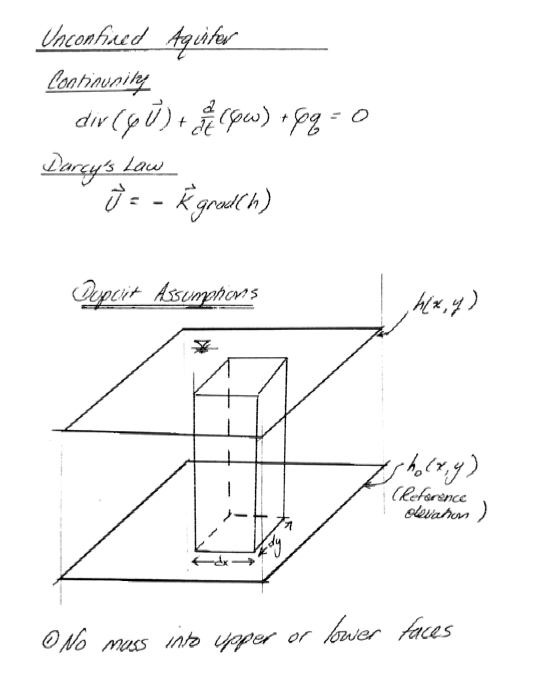 Unconfined Aquifer
Continunity
div(φU⃗) + ∂/∂t(φω) + φq = 0
Darcy's Law
U⃗ = - K⃗ grad(h)
Dupuit Assumptions
h(x,y)
h₀(x,y)
(Reference
elevation)
dy
dx
① No mass into upper or lower faces